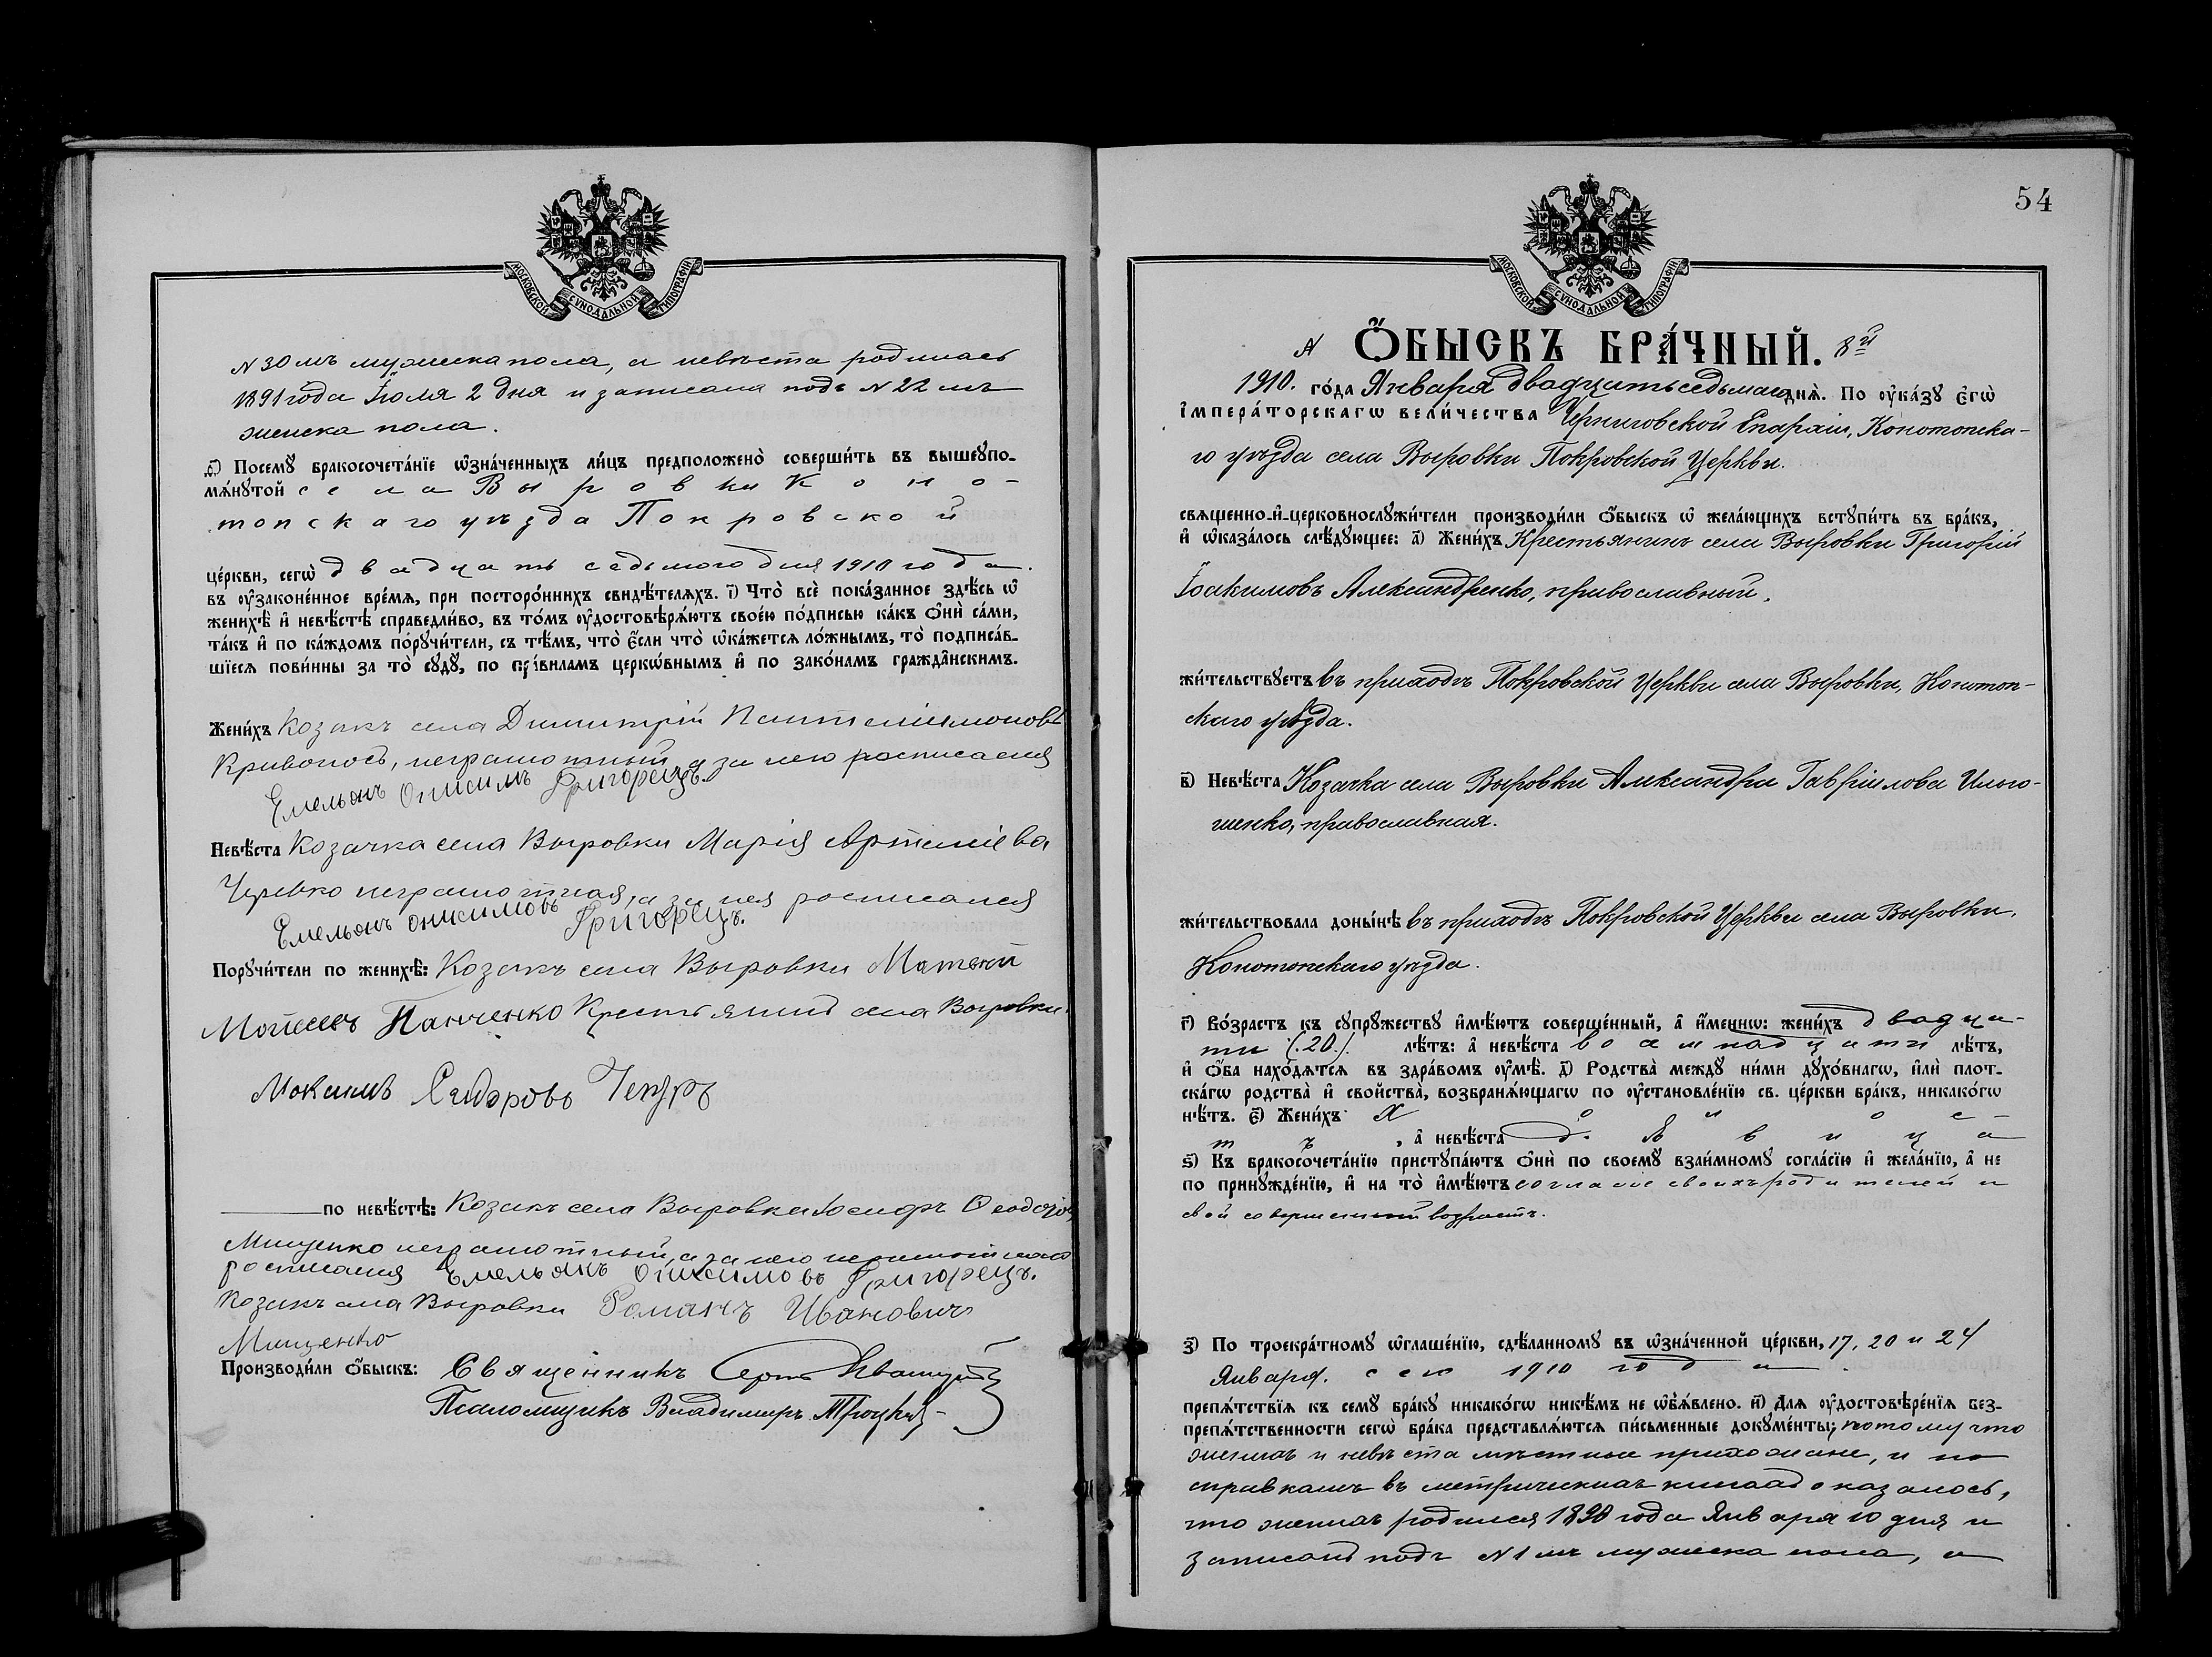 МОСКОВСКОЙ СѴНОДАЛЬНОЙ ТИПОГРАФІИ
N 30 мъ мужеска пола, а невѣста родилась
1891 года Іюля 2 дня и записана подъ N 22 мъ
женска пола.
ѳ҃) Посемꙋ̀ бракосочета́нїе ѡ҆зна́ченныхъ ли́цъ предположено̀ соверши́ть въ вышеꙋпо-
мѧ́нꙋтой села Выровки Коно-
топскаго уѣзда Покровской
це́ркви, сегѡ̀ двадцать седьмого дня 1910 года.
въ ᲂу҆законе́нное вре́мѧ, при посторо́ннихъ свидѣ́телѧхъ. і҃) Что̀ всѐ пока́занное здѣ́сь ѡ҆
женихѣ̀ и҆ невѣ́стѣ справедли́во, въ то́мъ ᲂу҆достовѣрѧ́ютъ свое́ю по́дписью ка́къ ѻ҆нѝ са́ми,
та́къ и҆ по ка́ждомъ порꙋчи́тели, съ тѣ́мъ, что̀ є҆́сли что̀ ѡ҆ка́жетсѧ ло́жнымъ, то̀ подписа́в-
шїесѧ пови́нны за то̀ сꙋдꙋ̀, по пра́виламъ церкѡ́внымъ и҆ по зако́намъ гражда́нскимъ.
Жени́хъ Козакъ села Димитрій Пантелимоновъ
Кривоносъ, неграмотный, а за него росписался
Емельянъ Онисимъ Григорецъ.
Невѣ́ста Козачка села Выровки Марія Артеміева
Черевко неграмотная, а за нея росписался
Емельянъ Онисимовъ Григорецъ.
Порꙋчи́тели по женихѣ̀: Козакъ села Выровки Матвей
Мойсеевъ Панченко Крестьянинъ села Выровки
Максимъ Сидоровъ
по невѣ́стѣ: Козакъ села Выровки Іосифъ Ѳеодоров
Мищенко неграмотный, а за него
росписался Емельянъ Онисимовъ Григорецъ.
Козакъ села Выровки Романъ Ивановичъ
Мищенко
Производи́ли ѻ҆́быскъ: Священникъ
Псаломщикъ Владимиръ Троцкій
54
МОСКОВСКОЙ СѴНОДАЛЬНОЙ ТИПОГРАФІИ
Ѻ҆́БЫСКЪ БРА́ЧНЫЙ. 8й
1910. го́да Января двадцать седьмаго днѧ̀. По ᲂу҆ка́зꙋ є҆гѡ̀
і҆мпера́торскагѡ вели́чества Черниговской Епархіи, Конотопска-
го уѣзда села Выровки Покровской Церкви.
свѧще́нно-и҆-церковнослꙋжи́тели производи́ли ѻ҆́быскъ ѡ҆ жела́ющихъ встꙋпи́ть въ бра́къ,
и҆ ѡ҆каза́лось слѣ́дꙋющее: а҃) Жени́хъ Крестьянинъ села Выровки Григорій
Іоакимовъ Александренко, православный.
жи́тельствꙋетъ въ приходѣ Покровской Церкви села Выровки, Конотоп-
скаго уѣзда.
в҃) Невѣ́ста Козачка села Выровки Александра Гавріилова
православная.
жи́тельствовала доны́нѣ въ приходѣ Покровской Церкви села Выровки,
Конотопскаго уѣзда.
г҃) Во́зрастъ къ сꙋпрꙋ́жествꙋ и҆мѣ́ютъ соверше́нный, а҆ и҆́меннѡ: жени́хъ двадца-
ти (20) лѣ́тъ: а҆ невѣ́ста восмнадцати лѣ́тъ,
и҆ ѻ҆́ба нахо́дѧтсѧ въ здра́вомъ ᲂу҆мѣ̀. д҃) Родства̀ междꙋ̀ ни́ми дꙋхо́внагѡ, и҆лѝ плот-
ска́гѡ родства̀ и҆ свойства̀, возбранѧ́ющагѡ по ᲂу҆становле́нїю св. це́ркви бра́къ, никако́гѡ
нѣ́тъ. є҃) Жени́хъ Холос-
тъ, а҆ невѣ́ста дѣвица
ѕ҃) Къ бракосочета́нїю пристꙋпа́ютъ ѻ҆нѝ по своемꙋ̀ взаи́мномꙋ согла́сїю и҆ жела́нїю, а҆ не
по принꙋжде́нїю, и҆ на то̀ и҆мѣ́ютъ согласіе своихъ родителей и
свой совершенный возрастъ.
з҃) По троекра́тномꙋ ѡ҆глаше́нїю, сдѣ́ланномꙋ въ ѡ҆зна́ченной це́ркви, 17, 20 и 24
Января. сего 1910 года.
препѧ́тствїѧ къ семꙋ̀ бра́кꙋ никако́гѡ никѣ́мъ не ѡ҆б̾ѧ́влено. и҃) Для ᲂу҆достовѣре́нїѧ без-
препѧ́тственности сегѡ̀ бра́ка представлѧ́ютсѧ пи́сьменные докꙋме́нты; потому что
женихъ и невѣста мѣстные прихожане, и по
справкамъ въ метрическихъ книгахъ оказалось,
что женихъ родился 1890 года Января 10 дня и
записанъ подъ N 1 мъ мужеска пола, а